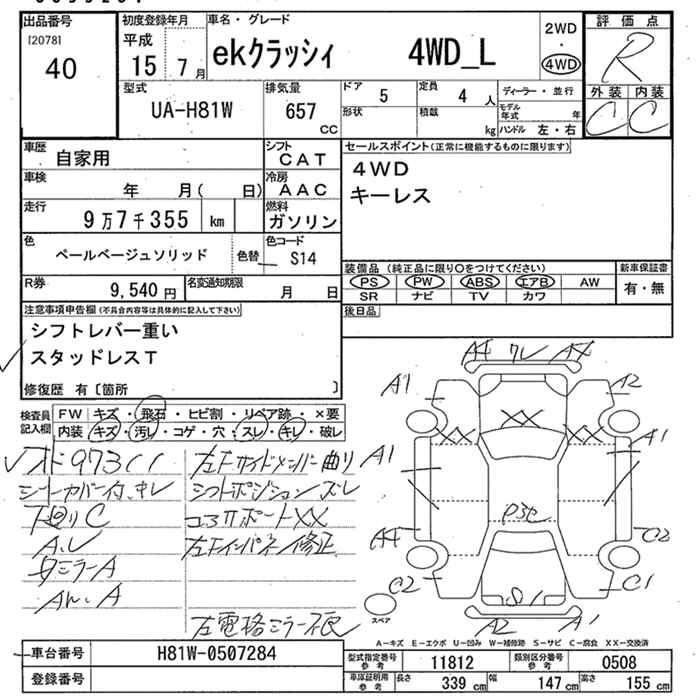 出品番号
[2078]
40
初度登録年月
平成
15 7月
車名・グレード
ekクラッシィ 4WD_L
2WD
・
4WD
評価点
R
外装 内装
C C
型式
UA-H81W
排気量
657
CC
ドア
5
定員
4人
形状
積載
kg
ディーラー・並行
モデル年式 年
ハンドル 左・右
車歴
自家用
シフト
CAT
車検
年 月( 日)
冷房
AAC
走行
9万7千355 km
燃料
ガソリン
色
ペールベージュソリッド
色替
色コード
S14
R券
9,540円
名変通知期限
月 日
セールスポイント(正常に機能するものに限ります)
4WD
キーレス
装備品(純正品に限り○をつけてください)
PS PW ABS エアB AW
SR ナビ TV カワ
新車保証書
有・無
後日品
注意事項申告欄(不具合内容等は具体的に記入して下さい)
シフトレバー重い
スタッドレスT
修復歴 有〔箇所 〕
検査員記入欄
FW キズ・飛石・ヒビ割・リペア跡・×要
内装 キズ・汚レ・コゲ・穴・スレ・キレ・破レ
シートカバー付、キレ
下廻りC
ミラーA
左Fサイドメンバー曲り
シフトポジションズレ
コアサポートXX
左Fインパネ修正
左電格ミラー不良
A4 ワレ A4
A1 A2
XX XX XX
A1 A1
P3セ
A4 C2
C2 C1
S1
A2 A1
スペア
A－キズ E－エクボ U－凹み W－補修跡 S－サビ C－腐食 XX－交換済
車台番号
H81W-0507284
登録番号
型式指定番号 参考
11812
類別区分番号 参考
0508
車庫証明用 参考
長さ 339 cm 幅 147 cm 高さ 155 cm